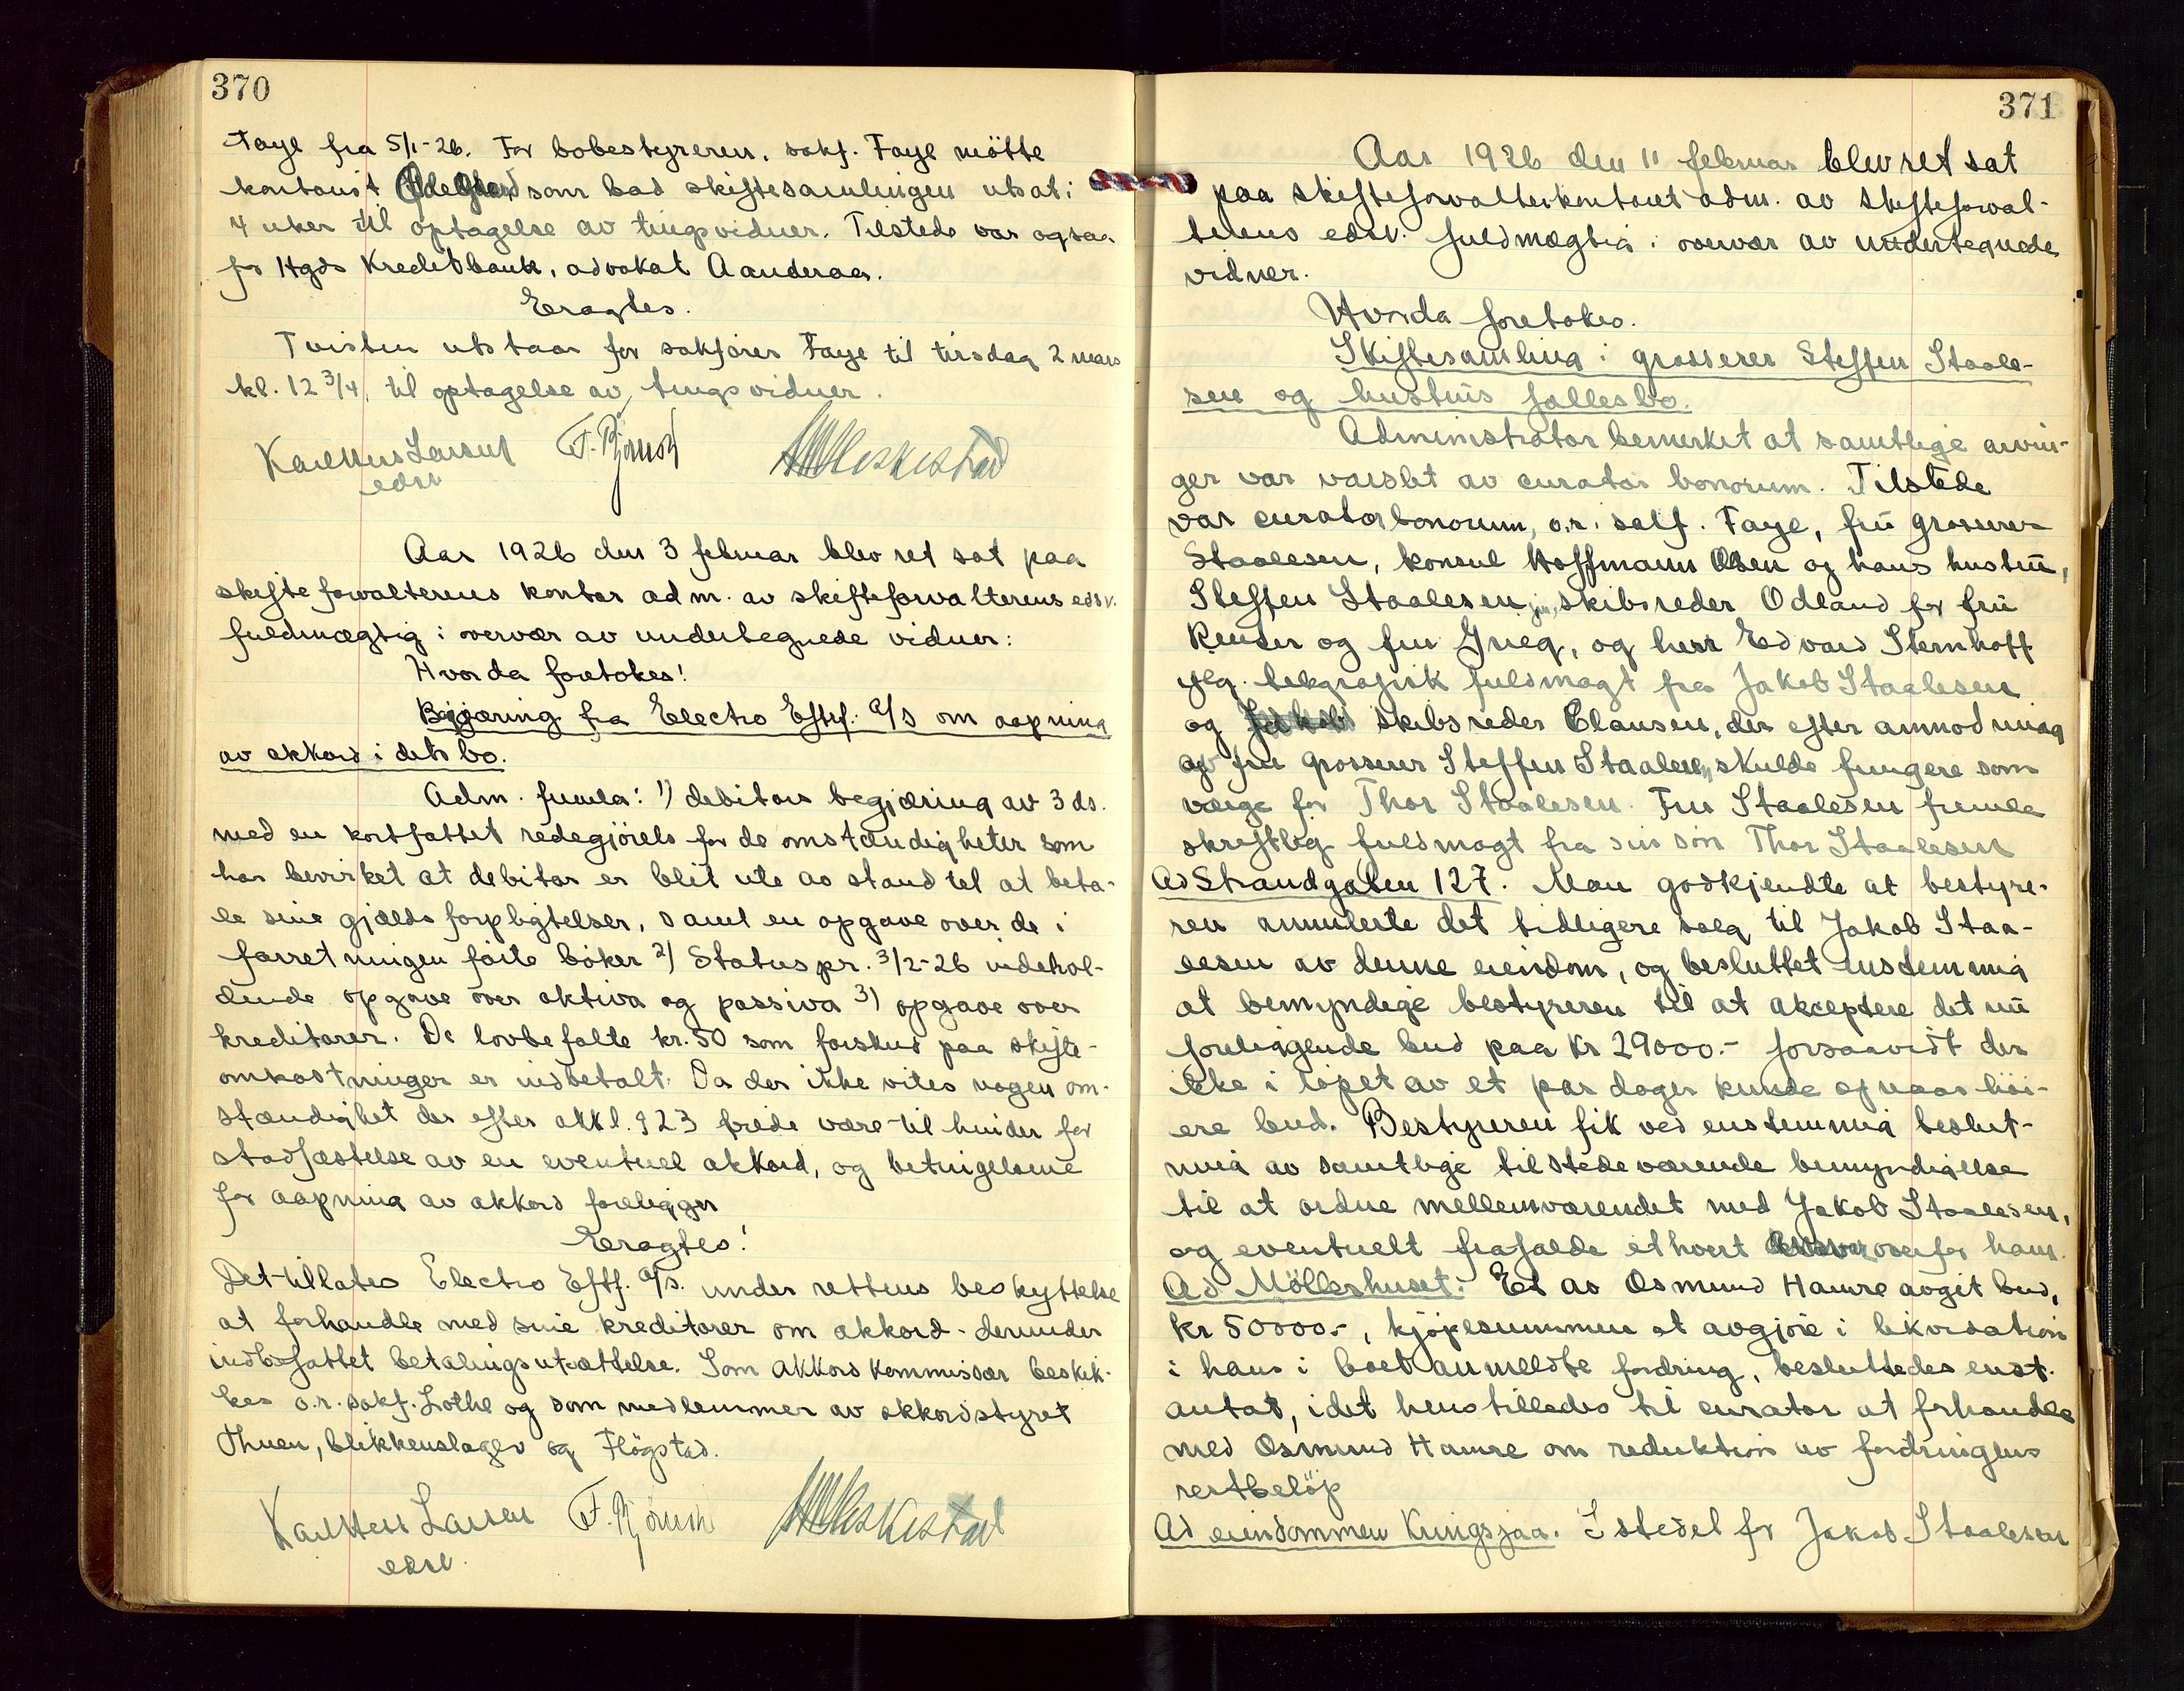 370
Faye fra 5/1-26. For bobestyreren, sakf. Faye mötte
kontorist som bad skiftesamlingen utsat i
4 uker til optagelse av tingsvidner. Tilstede var ogsaa
for Hgds Kreditbank, advokat Aanderaa.
Eragtes.
Tvisten utstaar for sakfører Faye til tirsdag 2 mars
kl. 12 3/4, til optagelse av tingsvidner.
Karl Larsen F. Bjørnsen
edsv
Aar 1926 den 3 februar blev ret sat paa
skifteforvalterens kontor adm. av skifteforvalterens edsv.
fuldmægtig i overvær av undertegnede vidner:
Hvorda foretokes!
Begjæring fra Electro Eftf. A/S om aapning
av akkord i dets bo.
Adm. fremla: 1) debitors begjæring av 3 ds.
med en kortfattet redegjörels for de omstændigheter som
har bevirket at debitor er blit ute av stand til at beta-
le sine gjældsforpligtelser, samt en opgave over de i
forretningen förte böker 2) Status pr. 3/2-26 indehol-
dende opgave over aktiva og passiva 3) opgave over
kreditorer. De lovbefalte kr. 50 som forskud paa skifte-
omkostninger er indbetalt. Da der ikke vites nogen om-
stændighet der efter akkl. § 23 tredie være til hinder for
stadfæstelse av en eventuel akkord, og betingelsene
for aapning av akkord foreligger
Eragtes!
Det tillates Electro Eftf. A/S. under rettens beskyttelse
at forhandle med sine kreditorer om akkord - derunder
indbefattet betalingsutsættelse. Som akkordkommissær beskik-
kes o.r. sakf. Lothe og som medlemmer av akkordstyret
Thuen, blikkenslager og Flögstad.
Karl Larsen F. Bjørnsen
edsv.
371
Aar 1926 den 11 februar blev ret sat
paa skifteforvalterkontoret adm. av skifteforval-
terens edsv. fuldmægtig i overvær av undertegnede
vidner.
Hvorda foretokes.
Skiftesamling i grosserer Steffen Staale-
sen og hustrus fællesbo.
Administrator bemerket at samtlige arvin-
ger var varslet av curator bonorum. Tilstede
var curator bonorum, o.r. sakf. Faye, fru grosserer
Staalesen, konsul Hoffmann Olsen og hans hustru,
Steffen Staalesen jn, skibsreder Odland for fru
Reuser og fru Grieg, og herr Edvard Sternhoff
iflg. telegrafisk fuldmagt fra Jakob Staalesen
og skibsreder Clausen, der efter anmodning
av fru grosserer Steffen Staalesen, skulde fungere som
værge for Thor Staalesen. Fru Staalesen fremla
skriftlig fuldmagt fra sin sön Thor Staalesen
Ad Strandgaten 127. Man godkjendte at bestyre-
ren annulerte det tidligere salg til Jakob Staa-
lesen av denne eiendom, og besluttet enstemmig
at bemyndige bestyreren til at akceptere det nu
foreliggende bud paa kr 29000.- forsaavidt der
ikke i löpet av et par dager kunde opnaas höi-
ere bud. Bestyreren fik ved enstemmig beslut-
ning av samtlige tilstedeværende bemyndigelse
til at ordne mellemværendet med Jakob Staalesen,
og eventuelt frafalde ethvert ansvar overfor ham.
Ad Möllerhuset. Et av Osmund Hamre avgit bud,
kr 50000.-, kjöpesummen at avgjöre i likvidation
i hans i boet anmeldte fordring, besluttedes enst.
antat, idet henstilledes til curator at forhandle
med Osmund Hamre om reduktion av fordringens
restbelöp
Ad eiendommen Kringsjaa. I stedet for Jakob Staalesen